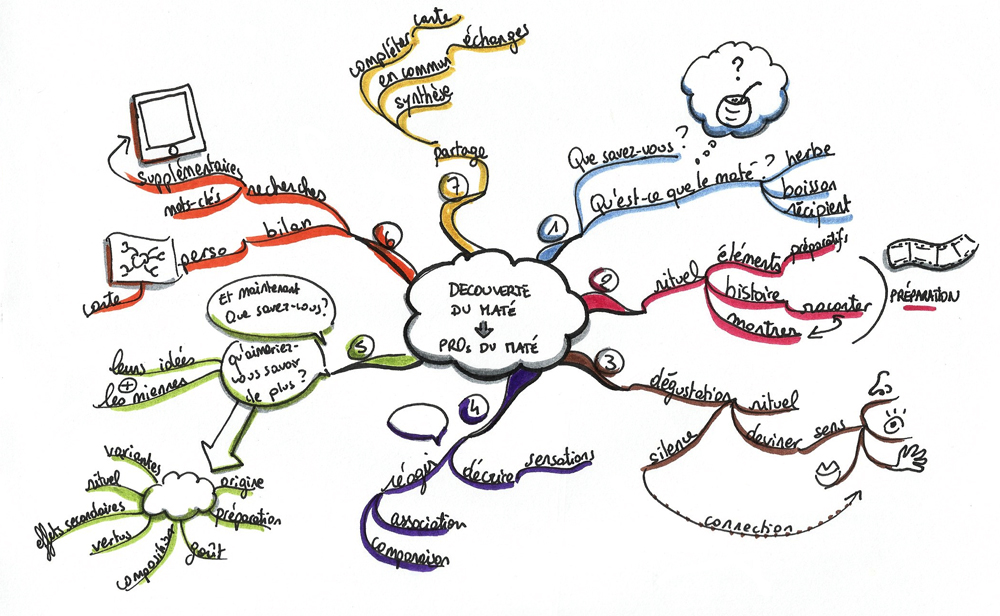 DECOUVERTE
DU MATÉ
PROs DU MATÉ
1
Que savez-vous ?
?
Qu'est-ce que le maté ?
herbe
boisson
récipient
2
rituel
éléments
préparatifs
histoire
raconter
montrer
PRÉPARATION
3
dégustation
rituel
deviner
sens
silence
connection
4
réagir
décrire
sensations
association
comparaison
5
Et maintenant
Que savez-vous ?
qu'aimeriez-
vous savoir
de plus ?
leurs idées
+
les miennes
variantes
rituel
effets secondaires
vertus
composition
goût
préparation
origine
6
recherches
supplémentaires
mots-clés
bilan
perso
carte
7
partage
compléter
carte
en commun
échanges
synthèse